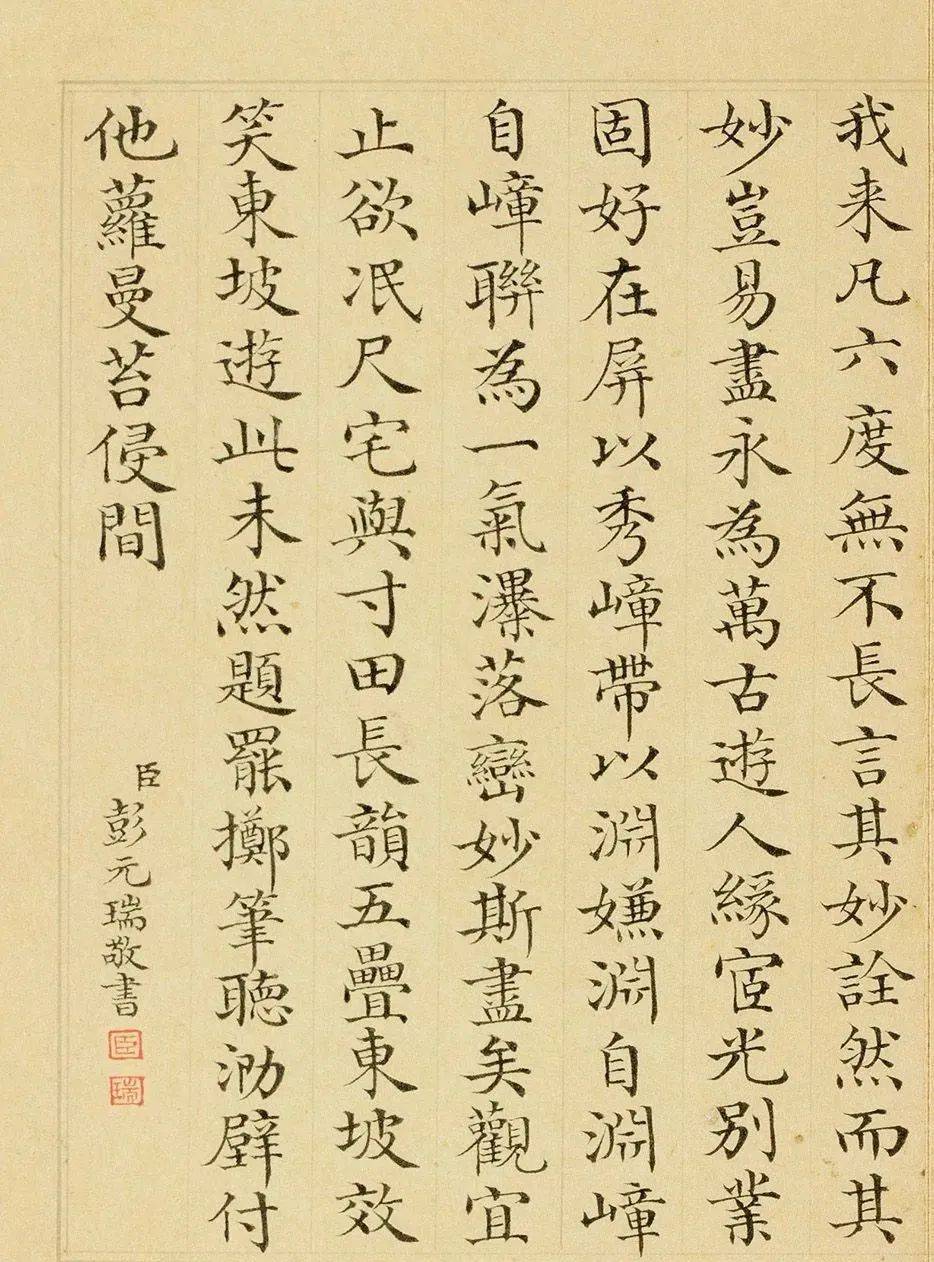 我来凡六度無不長言其妙詮然而其
妙豈易盡永為萬古遊人緣宧光別業
固好在屏以秀嶂帶以淵嫌淵自淵嶂
自嶂聯為一氣瀑落巒妙斯盡矣觀宜
止欲泯尺宅與寸田長韻五疊東坡效
笑東坡遊此未然題罷擲筆聴泐壁付
他蘿曼苔侵間
臣彭元瑞敬書
臣
瑞